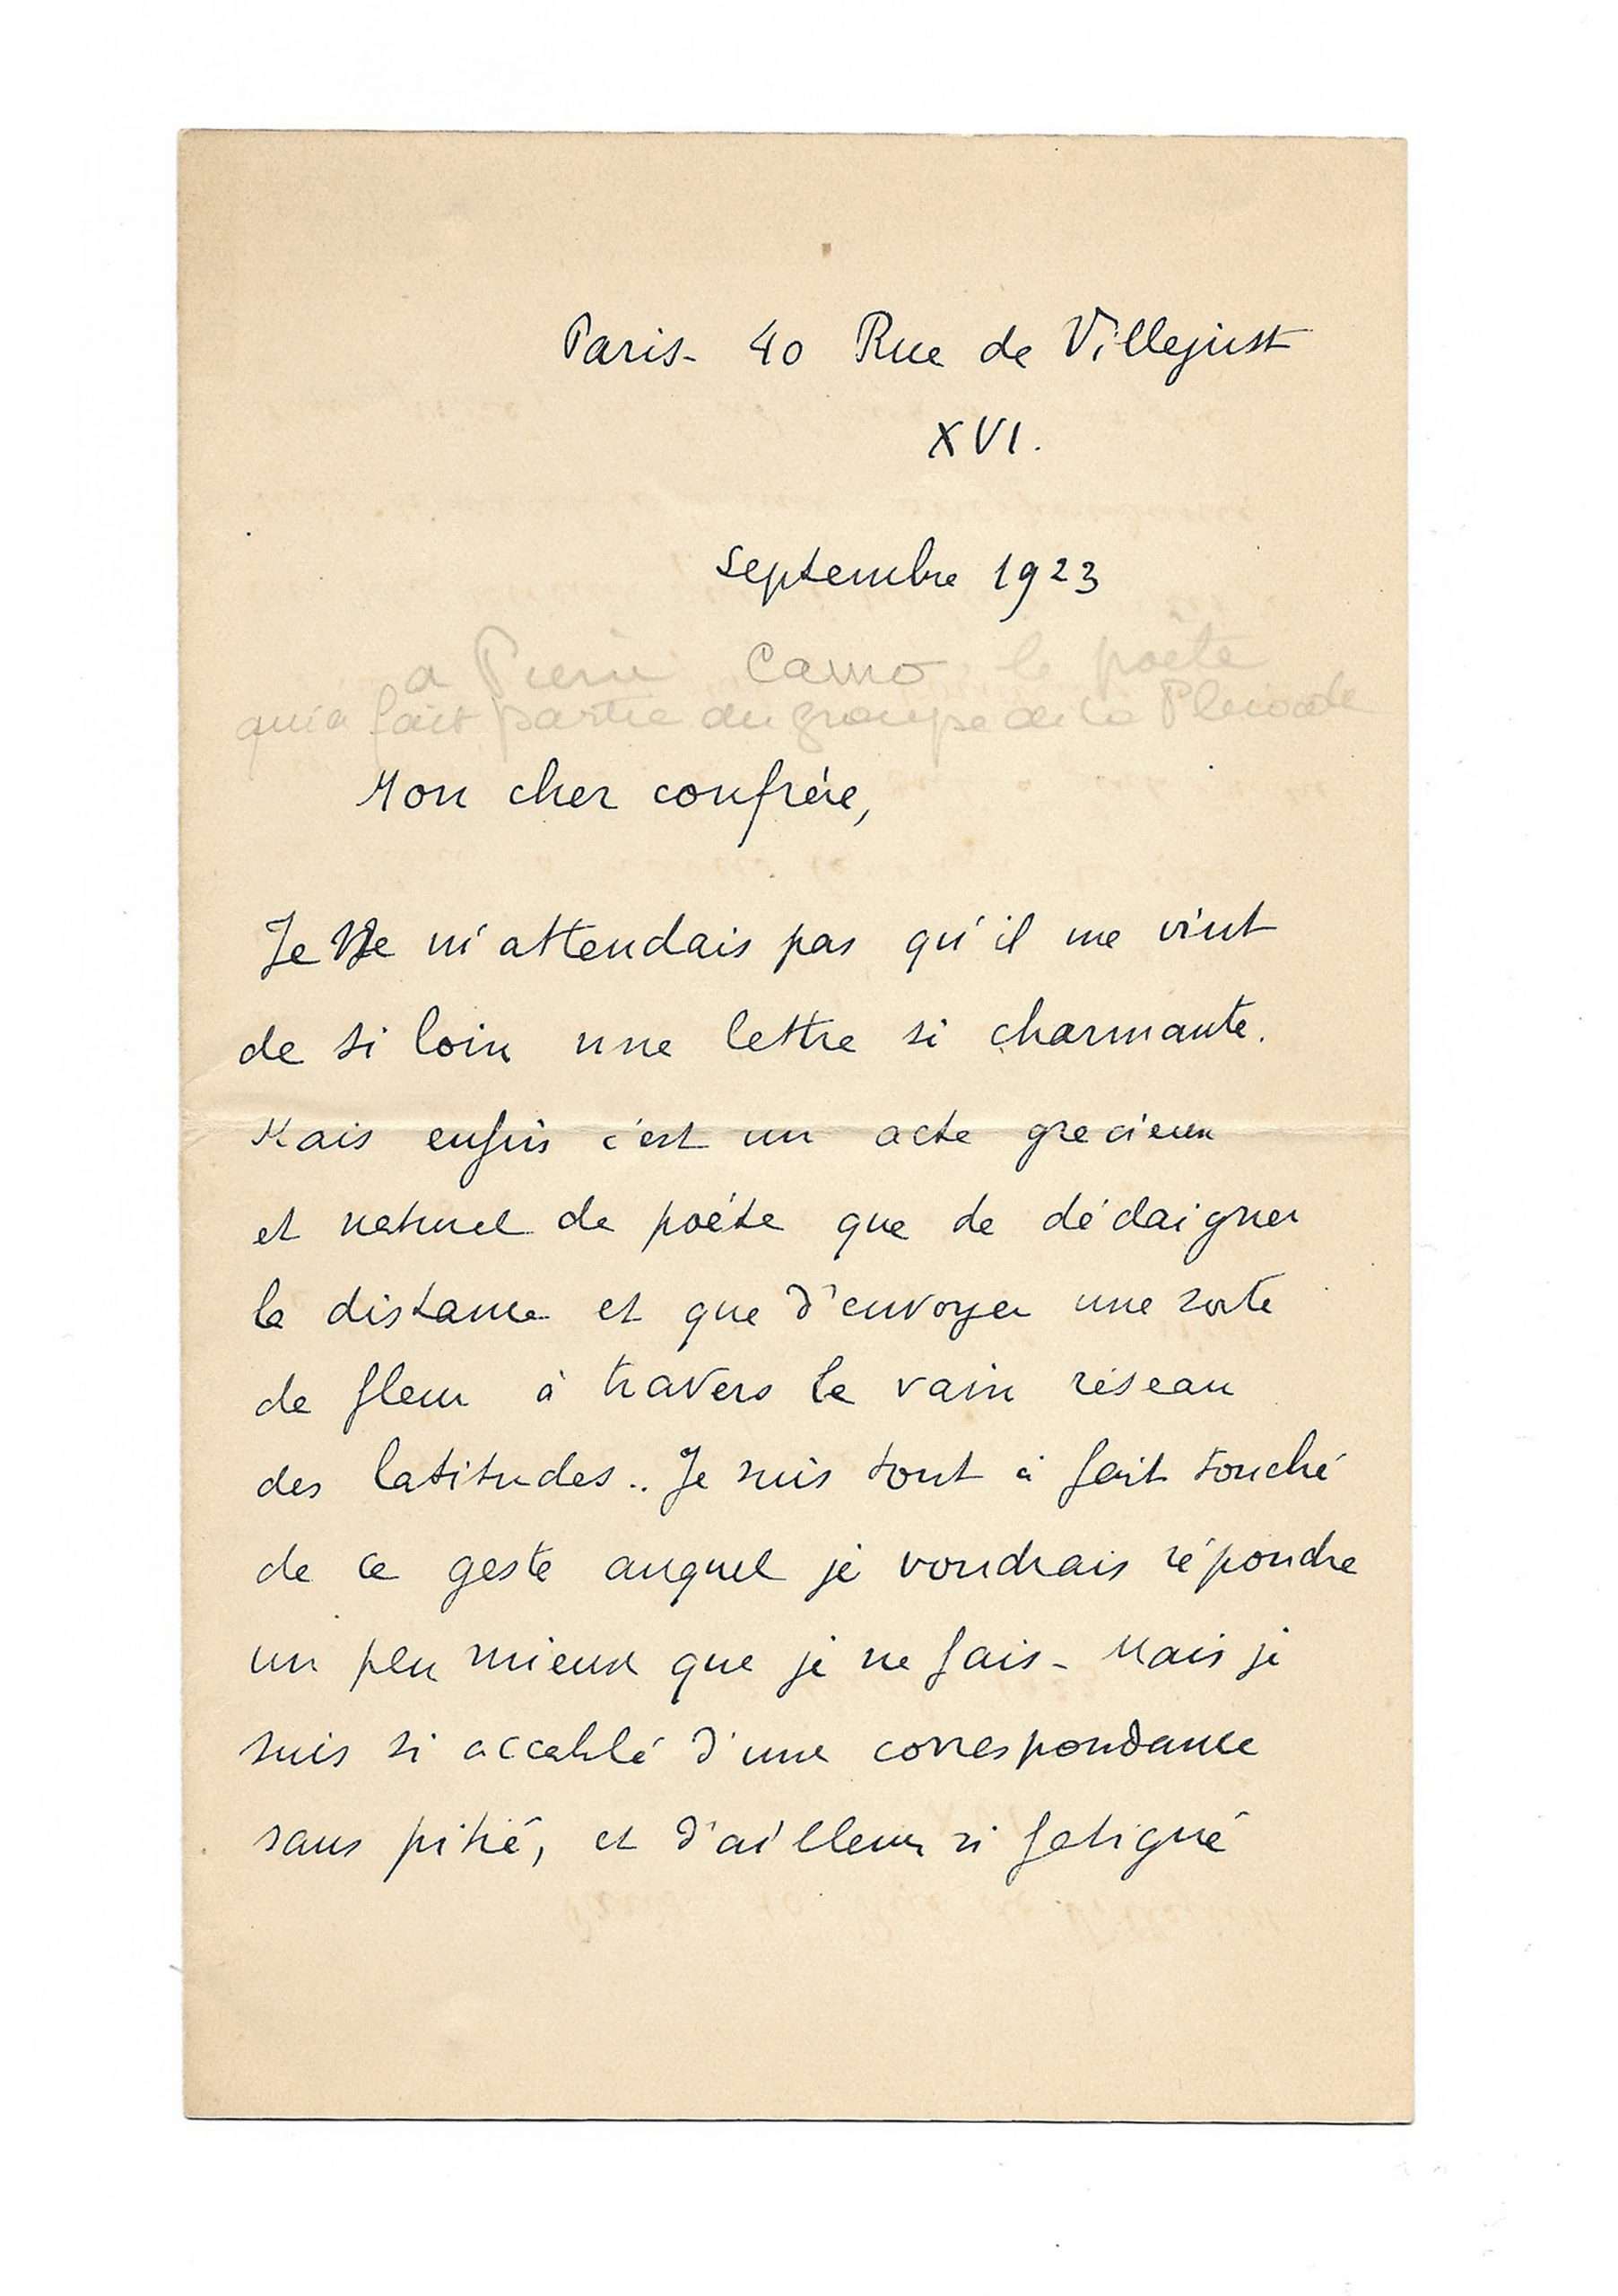 Paris- 40 Rue de Villejust
XVI.
Septembre 1923
a Pierre Camo le poète
qui a fait partie du groupe de la Pleiade
Mon cher confrère,
Je Ne m'attendais pas qu'il me vînt
de si loin une lettre si charmante.
Mais enfin c'est un acte gracieux
et naturel de poète que de dédaigner
la distance et que d'envoyer une sorte
de fleur à travers le vain réseau
des latitudes.. Je suis tout à fait touché
de ce geste auquel je voudrais répondre
un peu mieux que je ne fais- Mais je
suis si accablé d'une correspondance
sans pitié, et d'ailleurs si fatigué